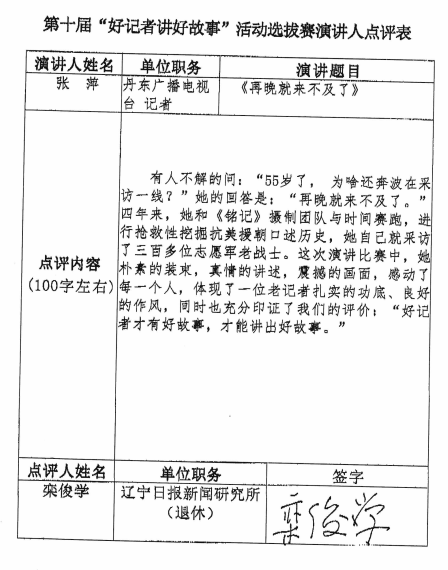 第十届“好记者讲好故事”活动选拔赛演讲人点评表
演讲人姓名 单位职务 演讲题目
张 萍 丹东广播电视台 记者 《再晚就来不及了》
点评内容
(100字左右)
有人不解的问：“55岁了， 为啥还奔波在采
访一线？”她的回答是：“再晚就来不及了。”
四年来，她和《铭记》摄制团队与时间赛跑，进
行抢救性挖掘抗美援朝口述历史，她自己就采访
了三百多位志愿军老战士。这次演讲比赛中，她
朴素的装束，真情的讲述，震撼的画面，感动了
每一个人，体现了一位老记者扎实的功底、良好
的作风，同时也充分印证了我们的评价：“好记
者才有好故事，才能讲出好故事。”
点评人姓名 单位职务 签字
栾俊学 辽宁日报新闻研究所
（退休）
栾俊学